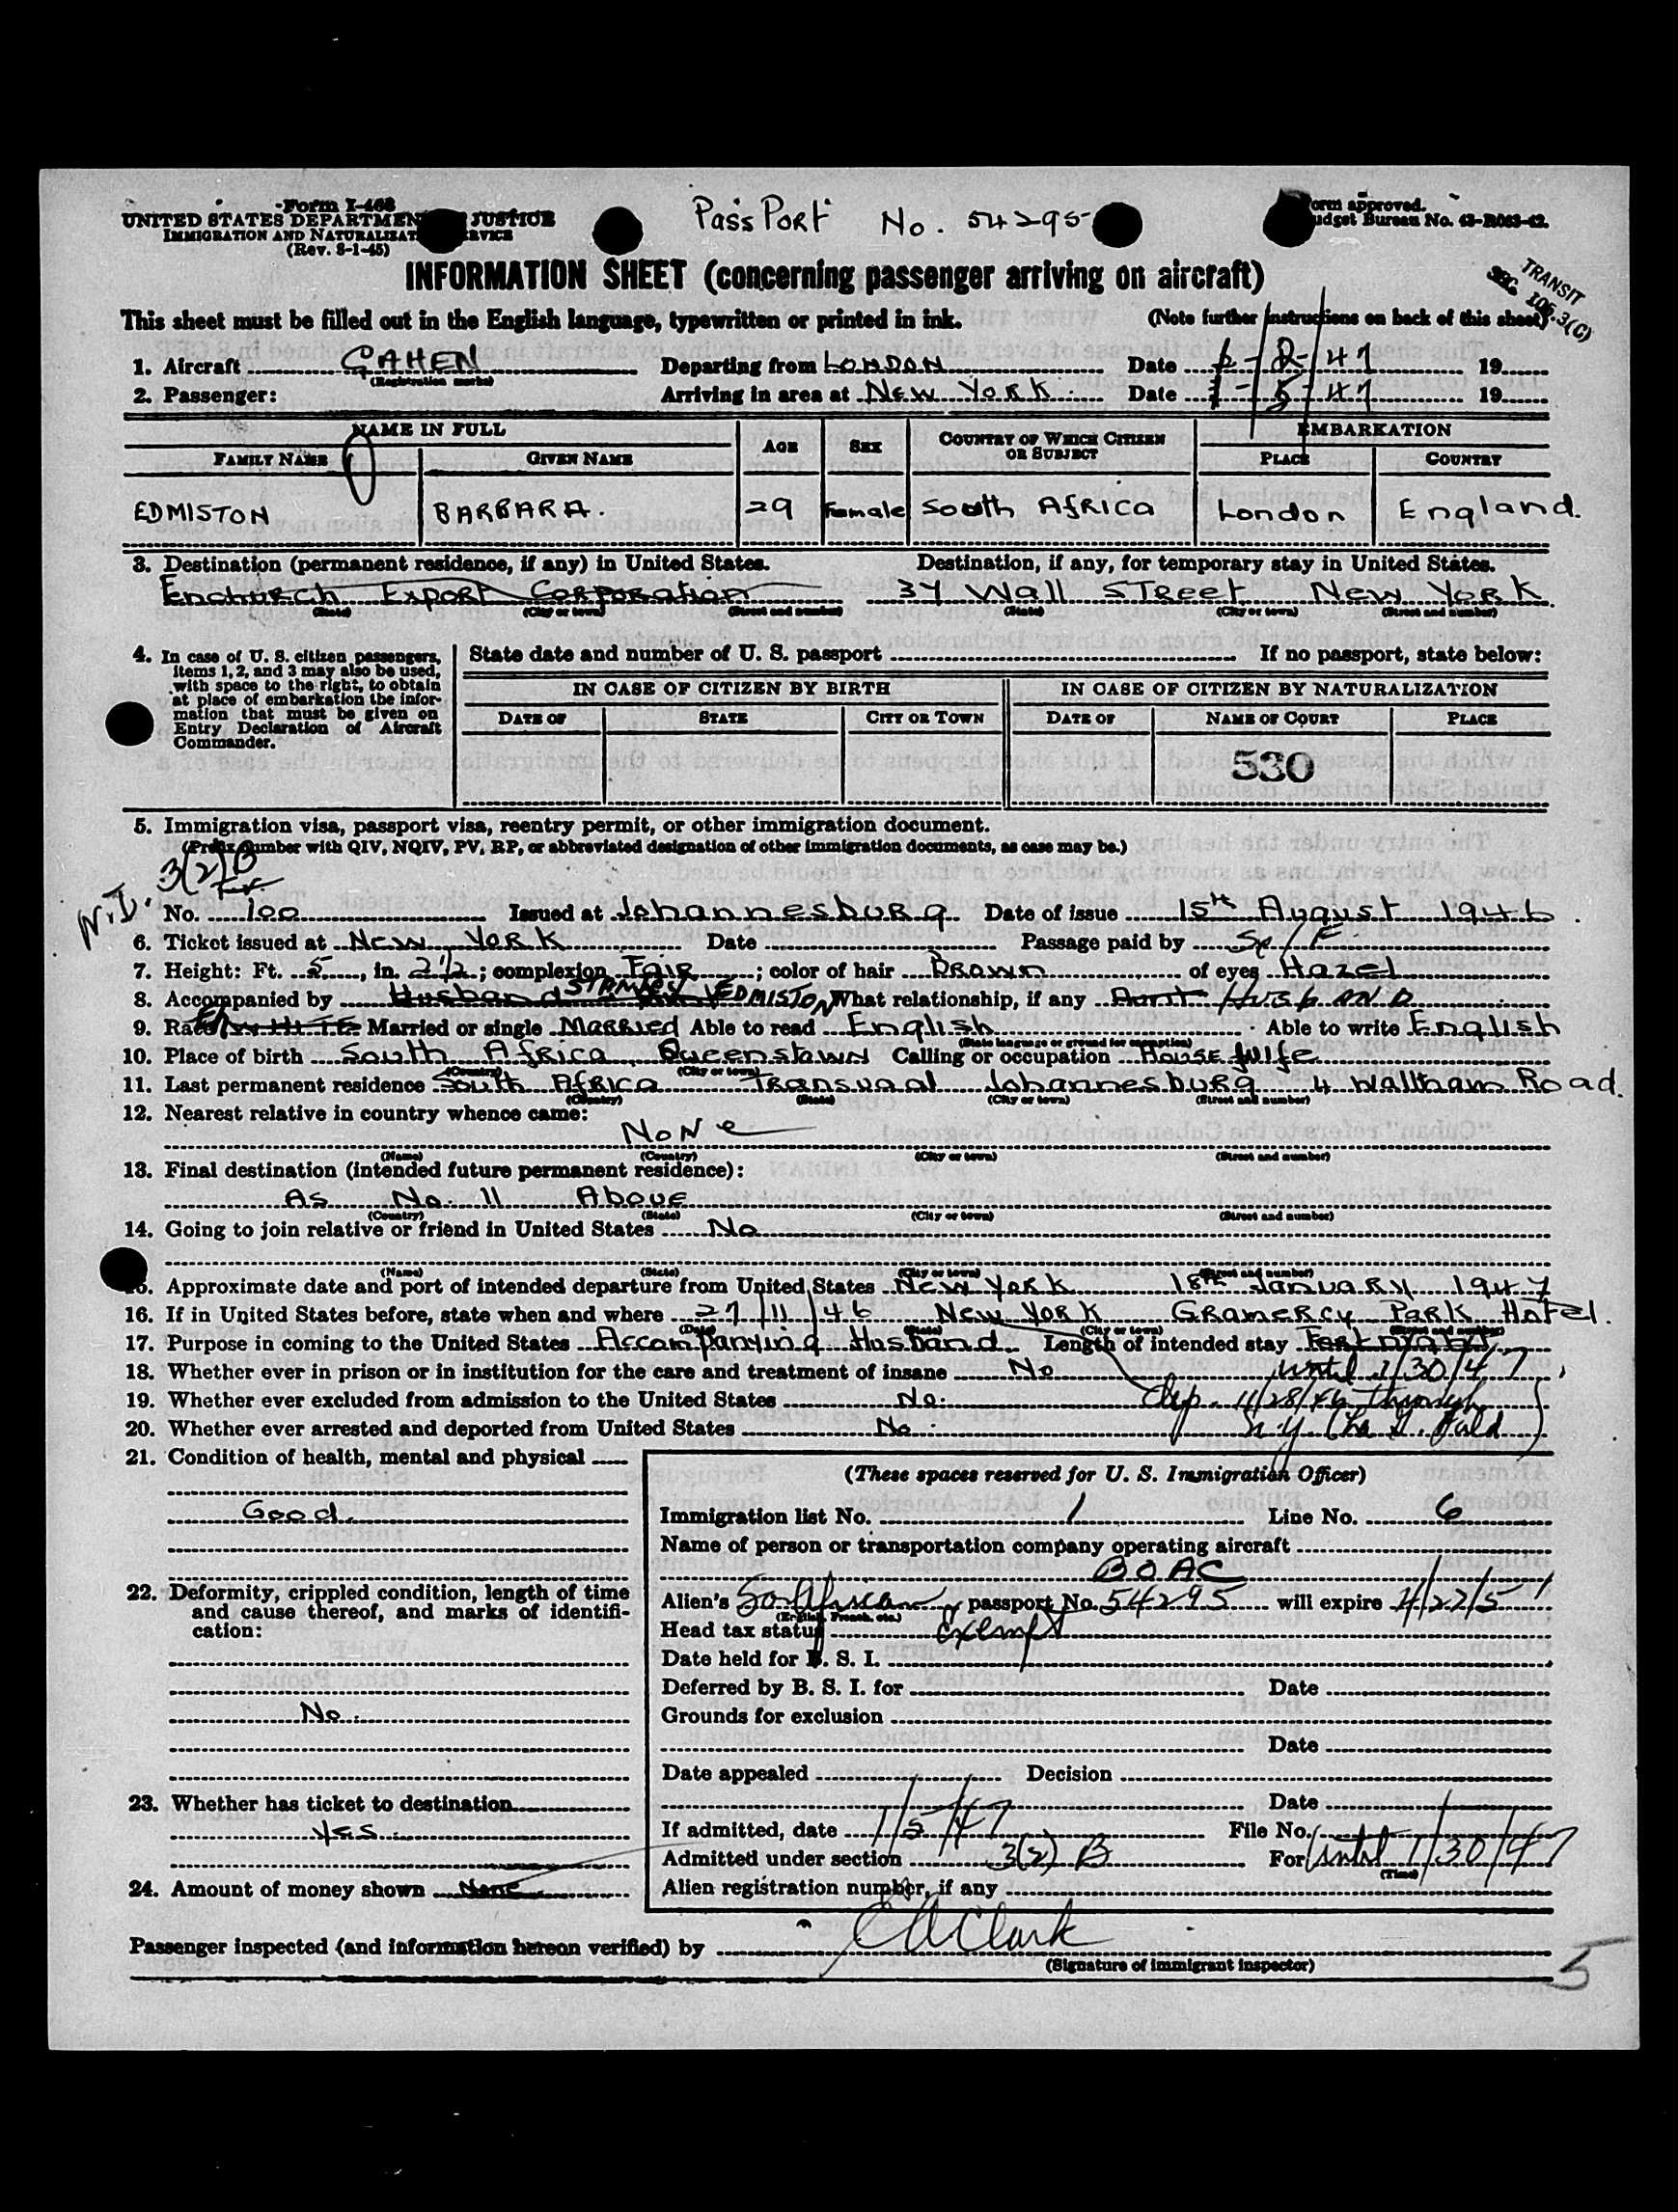 Form I-468
UNITED STATES DEPARTMENT JUSTICE
IMMIGRATION AND NATURALIZAT ERVICE
(Rev. 8-1-45)
PassPort No. 54295
orm approved.
udget Bureau No. 43-R063-42.
INFORMATION SHEET (concerning passenger arriving on aircraft)
TRANSIT
SEC. 106.3(C)
This sheet must be filled out in the English language, typewritten or printed in ink. (Note further instructions on back of this sheet)
1. Aircraft GAHEN Departing from LONDON Date 2-47 19
(Registration marks)
2. Passenger: Arriving in area at NEW YORK. Date 1-5-47 19
NAME IN FULL AGE SEX COUNTRY OF WHICH CITIZEN OR SUBJECT EMBARKATION
FAMILY NAME GIVEN NAME PLACE COUNTRY
EDMISTON BARBARA. 29 Female South Africa London England.
3. Destination (permanent residence, if any) in United States. Destination, if any, for temporary stay in United States.
Export Corporation 34 Wall STReet New York.
(State) (City or town) (Street and number) (State) (City or town) (Street and number)
4. In case of U. S. citizen passengers, items 1, 2, and 3 may also be used, with space to the right, to obtain at place of embarkation the information that must be given on Entry Declaration of Aircraft Commander.
State date and number of U. S. passport If no passport, state below:
IN CASE OF CITIZEN BY BIRTH IN CASE OF CITIZEN BY NATURALIZATION
DATE OF STATE CITY OR TOWN DATE OF NAME OF COURT PLACE
530
5. Immigration visa, passport visa, reentry permit, or other immigration document.
(Prefix number with QIV, NQIV, PV, RP, or abbreviated designation of other immigration documents, as case may be.)
3(2)B
N.I.
No. 100 Issued at Johannesburg Date of issue 15th August 1946.
6. Ticket issued at New York Date Passage paid by
7. Height: Ft. 5, in. 2½; complexion Fair; color of hair Brown of eyes Hazel
8. Accompanied by Husband STANLEY EDMISTON What relationship, if any Aunt HUSBAND
9. Race WHITE Married or single Married Able to read English Able to write English
(State language or ground for exemption)
10. Place of birth South Africa Queenstown Calling or occupation House Wife
(Country) (City or town)
11. Last permanent residence South Africa Transvaal Johannesburg 4 Waltham Road.
(Country) (State) (City or town) (Street and number)
12. Nearest relative in country whence came:
None
(Name) (Country) (City or town) (Street and number)
13. Final destination (intended future permanent residence):
As No. 11 Above
(Country) (State) (City or town) (Street and number)
14. Going to join relative or friend in United States No
(Name) (State) (City or town) (Street and number)
5. Approximate date and port of intended departure from United States New York 18th January 1947
16. If in United States before, state when and where 27/11/46 New York Gramercy Park Hotel.
(Date) (State) (City or town) (Street and number)
17. Purpose in coming to the United States Accompanying Husband Length of intended stay Fortnight
18. Whether ever in prison or in institution for the care and treatment of insane No until 1/30/47
19. Whether ever excluded from admission to the United States No. dep. 11/28/46 through
20. Whether ever arrested and deported from United States No. N.Y. (La G. Field)
21. Condition of health, mental and physical
Good.
22. Deformity, crippled condition, length of time and cause thereof, and marks of identification:
No.
23. Whether has ticket to destination
Yes.
24. Amount of money shown None
(These spaces reserved for U. S. Immigration Officer)
Immigration list No. 1 Line No. 6
Name of person or transportation company operating aircraft
BOAC
Alien's So African passport No. 54295 will expire 4/22/51
(English, French, etc.)
Head tax status Exempt
Date held for B. S. I.
Deferred by B. S. I. for Date
Grounds for exclusion
Date
Date appealed Decision
Date
If admitted, date 1/5/47 File No.
Admitted under section 3(2) B For until 1/30/47
(Time)
Alien registration number, if any
Passenger inspected (and information hereon verified) by CA Clark
(Signature of immigrant inspector)
5